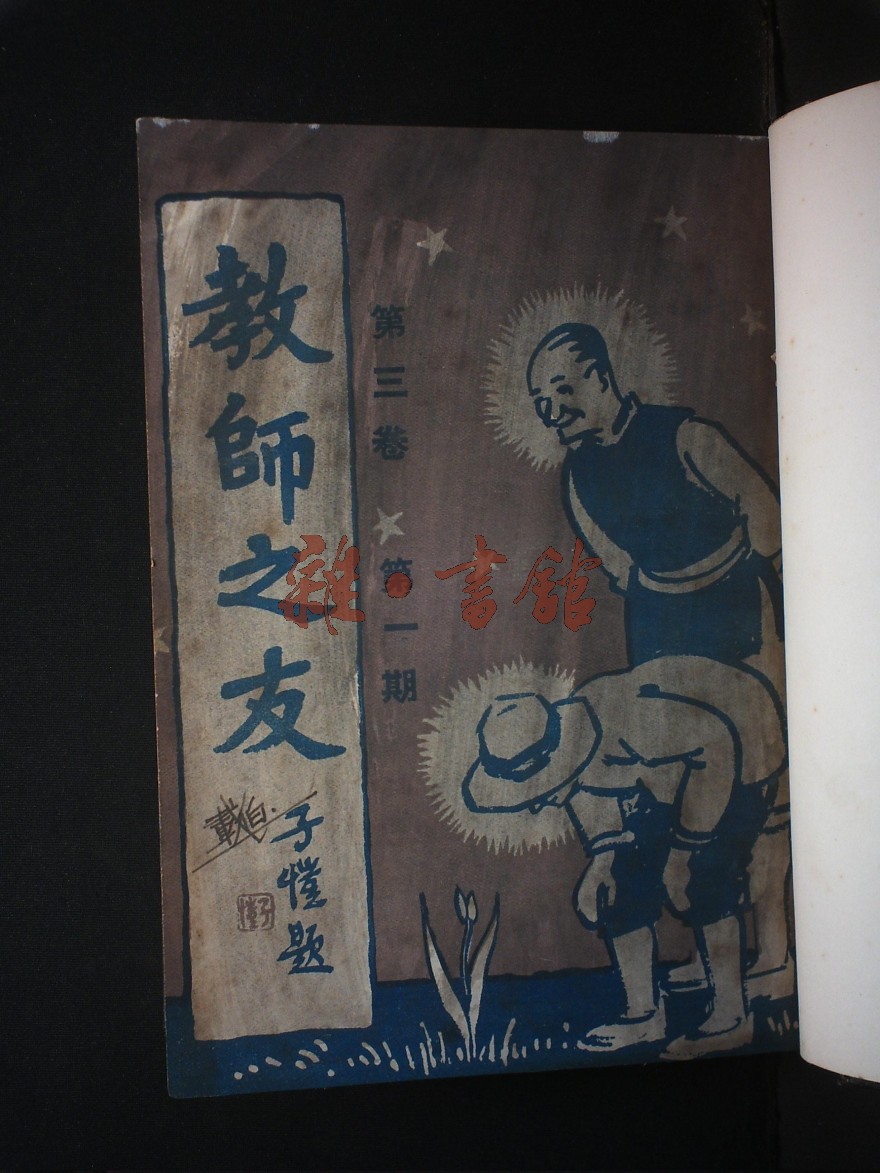 教師之友
子愷題
第三卷 第一期
雜·書館